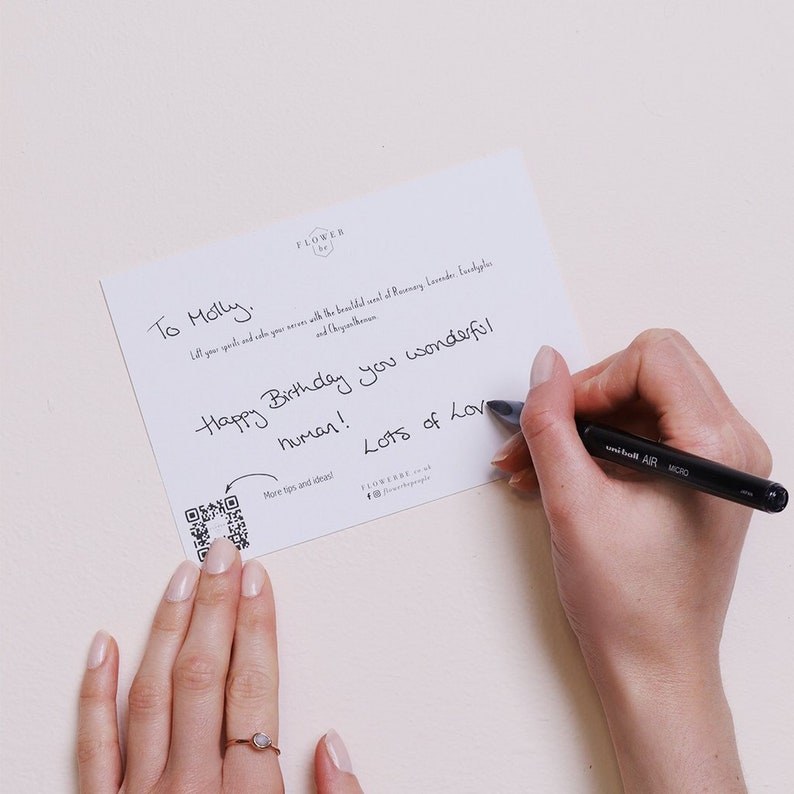 FLOWER
be
To Molly,
Lift your spirits and calm your nerves with the beautiful scent of Rosemary, Lavender, Eucalyptus
and Chrysanthemum.
Happy Birthday you wonderful
human!
Lots of Lov
More tips and ideas!
FLOWERBE.co.uk
flowerbepeople
uni-ball AIR MICRO JAPAN